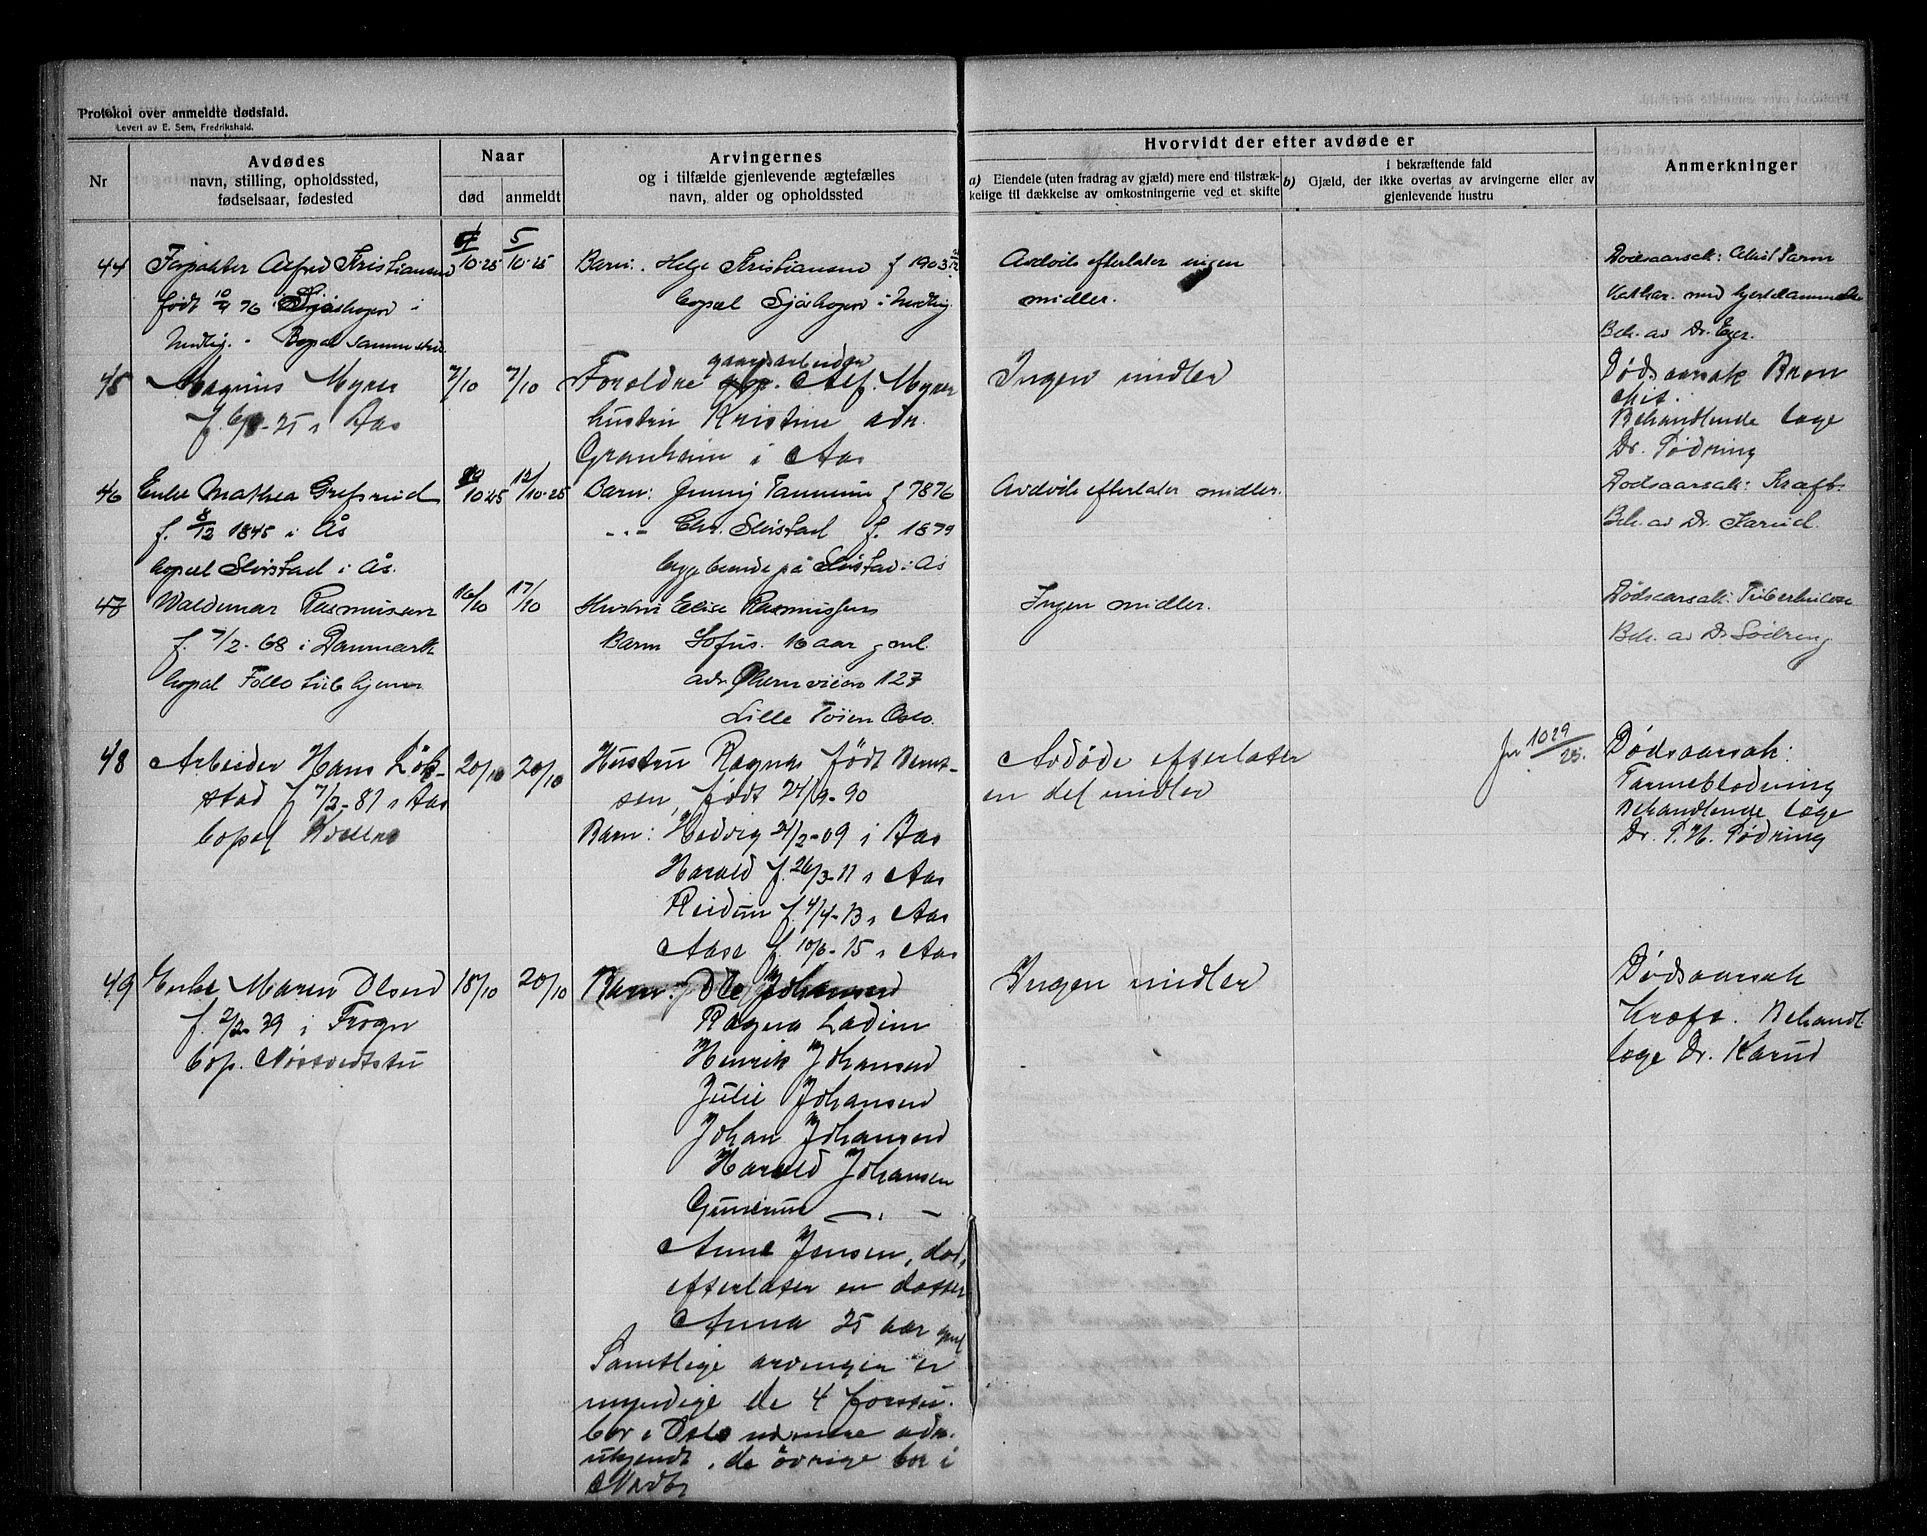 Protokol over anmeldte dødsfald.
Levert av E. Sem, Fredrikshald.
Nr
Avdødes
navn, stilling, opholdssted,
fødselsaar, fødested
Naar
død
anmeldt
Arvingernes
og i tilfælde gjenlevende ægtefælles
navn, alder og opholdssted
Hvorvidt der efter avdøde er
a) Eiendele (uten fradrag av gjæld) mere end tilstræk-
kelige til dækkelse av omkostningerne ved et skifte
i bekræftende fald
b) Gjæld, der ikke overtas av arvingerne eller av
gjenlevende hustru
Anmerkninger
44
Forpakter Alfred Kristiansen
født 10/9 76 i Sjøskogen i
Bopæl samme sted
10.25
5/10.25
Barn: Helge Kristiansen f 1903
bopæl Sjøskogen i
Avdøde efterlater ingen
midler.
Dødsaarsak:
Kathar. med
Beh. av Dr. Eger.
45
Magnus Myrer
-25 i Aas
7/10
7/10
gaardsarbeider
Foreldre Alf. Myrer
hustru Kristine adr.
Granheim i Aas
Ingen midler
Dødsaarsak Bron
chit.
Behandlende læge
Dr. Sødring
46
Enke Mathea Grefsrud
f. 8/12 1845 i Ås
bopæl Skistad i Ås.
10.25
12/10.25
Barn: Jenny f 1876
-"- Chr. Skistad f. 1879
begge boende på Skistad i Ås
Avdøde efterlater midler.
Dødsaarsak: Kræft.
Beh. av Dr. Karud.
47
Waldemar Rasmussen
f. 7/2-68 i Danmark
bopæl Follo tub. hjem
16/10
17/10
Hustru Elise Rasmussen
Barn Sofus. 16 aar gml
adr. Økernveien 127
Lille Tøien Oslo.
Ingen midler.
Dødsaarsak: Tuberkulose
Beh. av Dr Sødring
48
Arbeider Hans Løk-
stad f 7/2-87 i Aas
bopæl
20/10
20/10
Hustru Ragna født Bernt-
sen, født 24/9-90
Barn: Hedvig 21/2-09 i Aas
Harald f. 26/3-11 i Aas
Reidun f. 4/4-13 i Aas
Aase f. 10/6-15 i Aas
Avdøde efterlater
en del midler
jnr 1029/25.
Dødsaarsak:
Tarmeblødning
Behandlende læge
Dr. P. H. Sødring
49
Enke Maren Olsen
f. 2/2-39 i Frogn
bop. Nøstvedtstu
18/10
20/10
Barn: Ole Johansen
Ragna Ladim
Henrik Johansen
Julie Johansen
Johan Johansen
Harald Johansen
Gunerius — " —
Anne Jensen, død,
efterlater en datter
Anna 25 aar gml
Samtlige arvinger er
myndige de 4 første
bor i Oslo nærmere adr.
ukjendt, de øvrige bor i
Ingen midler
Dødsaarsak
Kræft. Behandl
læge Dr. Karud